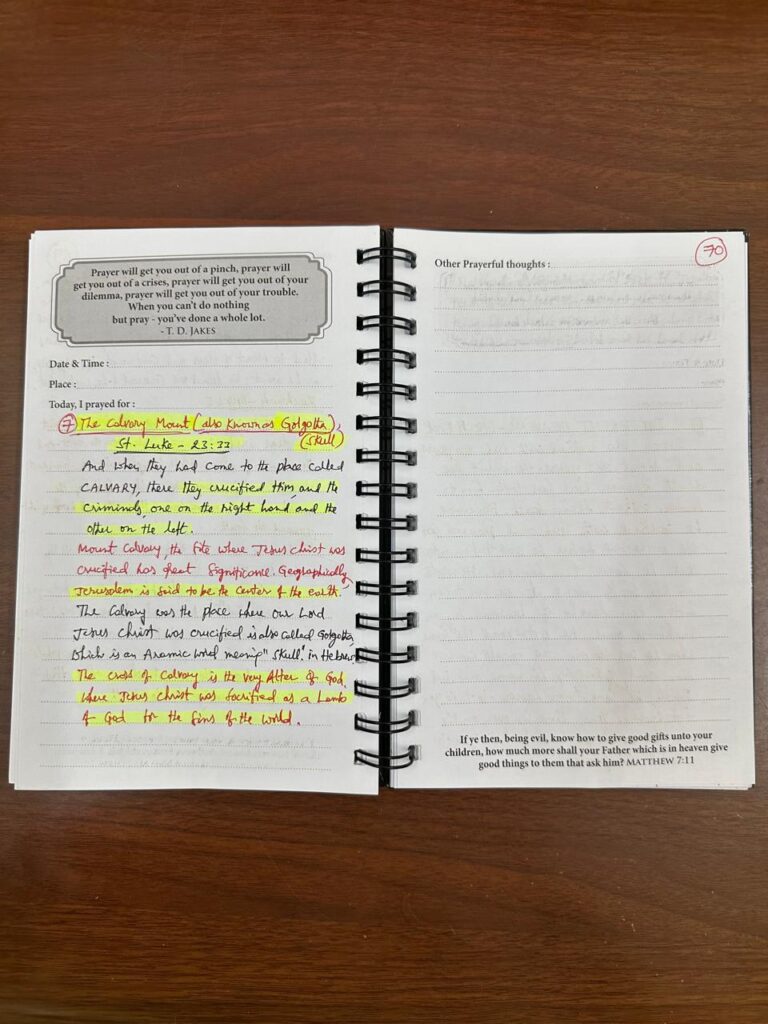 Prayer will get you out of a pinch, prayer will
get you out of a crises, prayer will get you out of your
dilemma, prayer will get you out of your trouble.
When you can't do nothing
but pray - you've done a whole lot.
- T. D. JAKES
Date & Time :
Place :
Today, I prayed for :
7 The Calvary Mount (also known as Golgotta),
(Skull)
St. Luke - 23:33
And when they had come to the place called
CALVARY, there they crucified Him, and the
criminals, one on the right hand and the
other on the left.
Mount Calvary, the site where Jesus christ was
crucified has great significance. Geographically,
Jerusalem is said to be the center of the earth.
The Calvary was the place where our Lord
Jesus Christ was crucified is also called Golgotta
which is an Aramic word meaning "skull" in Hebrew.
The cross of Calvary is the very Alter of God,
where Jesus Christ was sacrified as a Lamb
of God for the sins of the world.
70
Other Prayerful thoughts :
If ye then, being evil, know how to give good gifts unto your
children, how much more shall your Father which is in heaven give
good things to them that ask him? MATTHEW 7:11